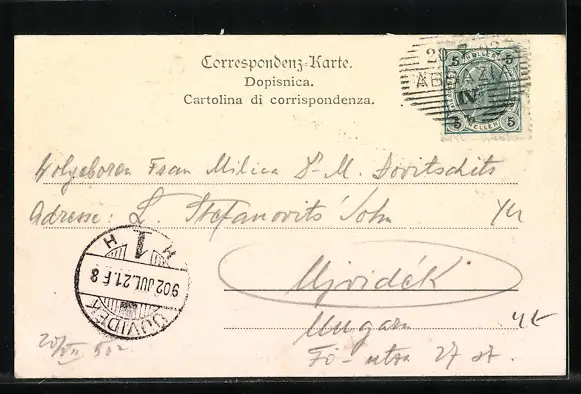 Correspondenz-Karte.
Dopisnica.
Cartolina di corrispondenza.
5 5
20 7 02
ABBAZIA
IV
5 HELLER 5
Wolgeboren Frau Milica Dr M. Dovitschits
Adresse: L. Stefanovits' Sohn
Ujvidék
Ungarn
Fő-utca 27 sz.
20/VII 902
UJVIDÉK
902 JUL. 21. F 8
1
H H